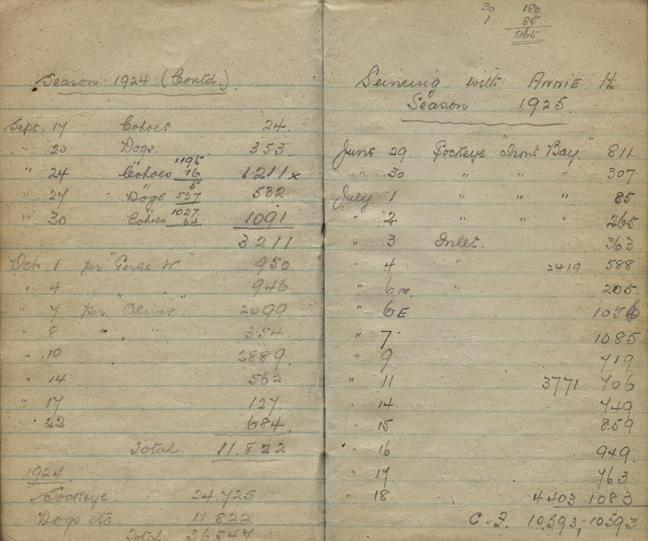 Season 1924 (Contd.)
Sept. 17 Cohoes 24.
" 20 Dogs. 353.
" 24 Cohoes 1195 16 1211x
" 27 Dogs 5 527 532
" 30 Cohoes 1027 64 1091
3211
Oct. 1 per 950
" 4 " " 946
" 7 per "Oliver" 2099
" 8 " " 354.
" 10 2889.
" 14 562
" 17 127
" 22 684.
Total 11.822
1924
Sockeye. 24.725
Dogs etc. 11822
Total 36547
30 180
1 85
265
Seining with ANNIE H.
Season 1925.
June 29 Sockeye "Front Bay." 811
" 30 " " " 307
July 1 " " " 85
" 2 " " " 265
" 3 Inlet. 363
" 4 " 2419 588
" 6 m. " 205
" 6E 1056
" 7 1085
" 9 719
" 11 3771 706
" 14 749
" 15 859
" 16 949.
" 17 763
" 18 4403 1083
C. F. 10.593; 10593